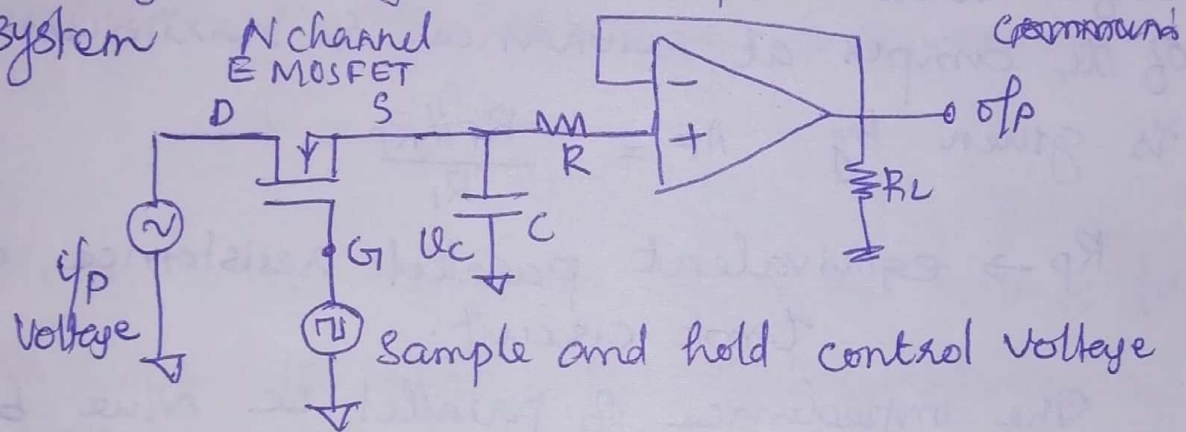 system N channel
E MOSFET
D
S
R
-
+
o/p
RL
G
Vc
C
i/p
voltage
Sample and hold control Volteye